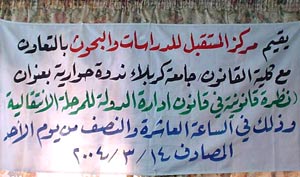 يقيم مركز المستقبل للدراسات والبحوث بالتعاون
مع كلية القانون جامعة كربلاء ندوة حوارية بعنوان
(نظرة قانونية في قانون ادارة الدولة للمرحلة الأنتقالية
وذلك في الساعة العاشرة والنصف من يوم الأحد
المصادف ١٤ / ٣ / ٢٠٠٤